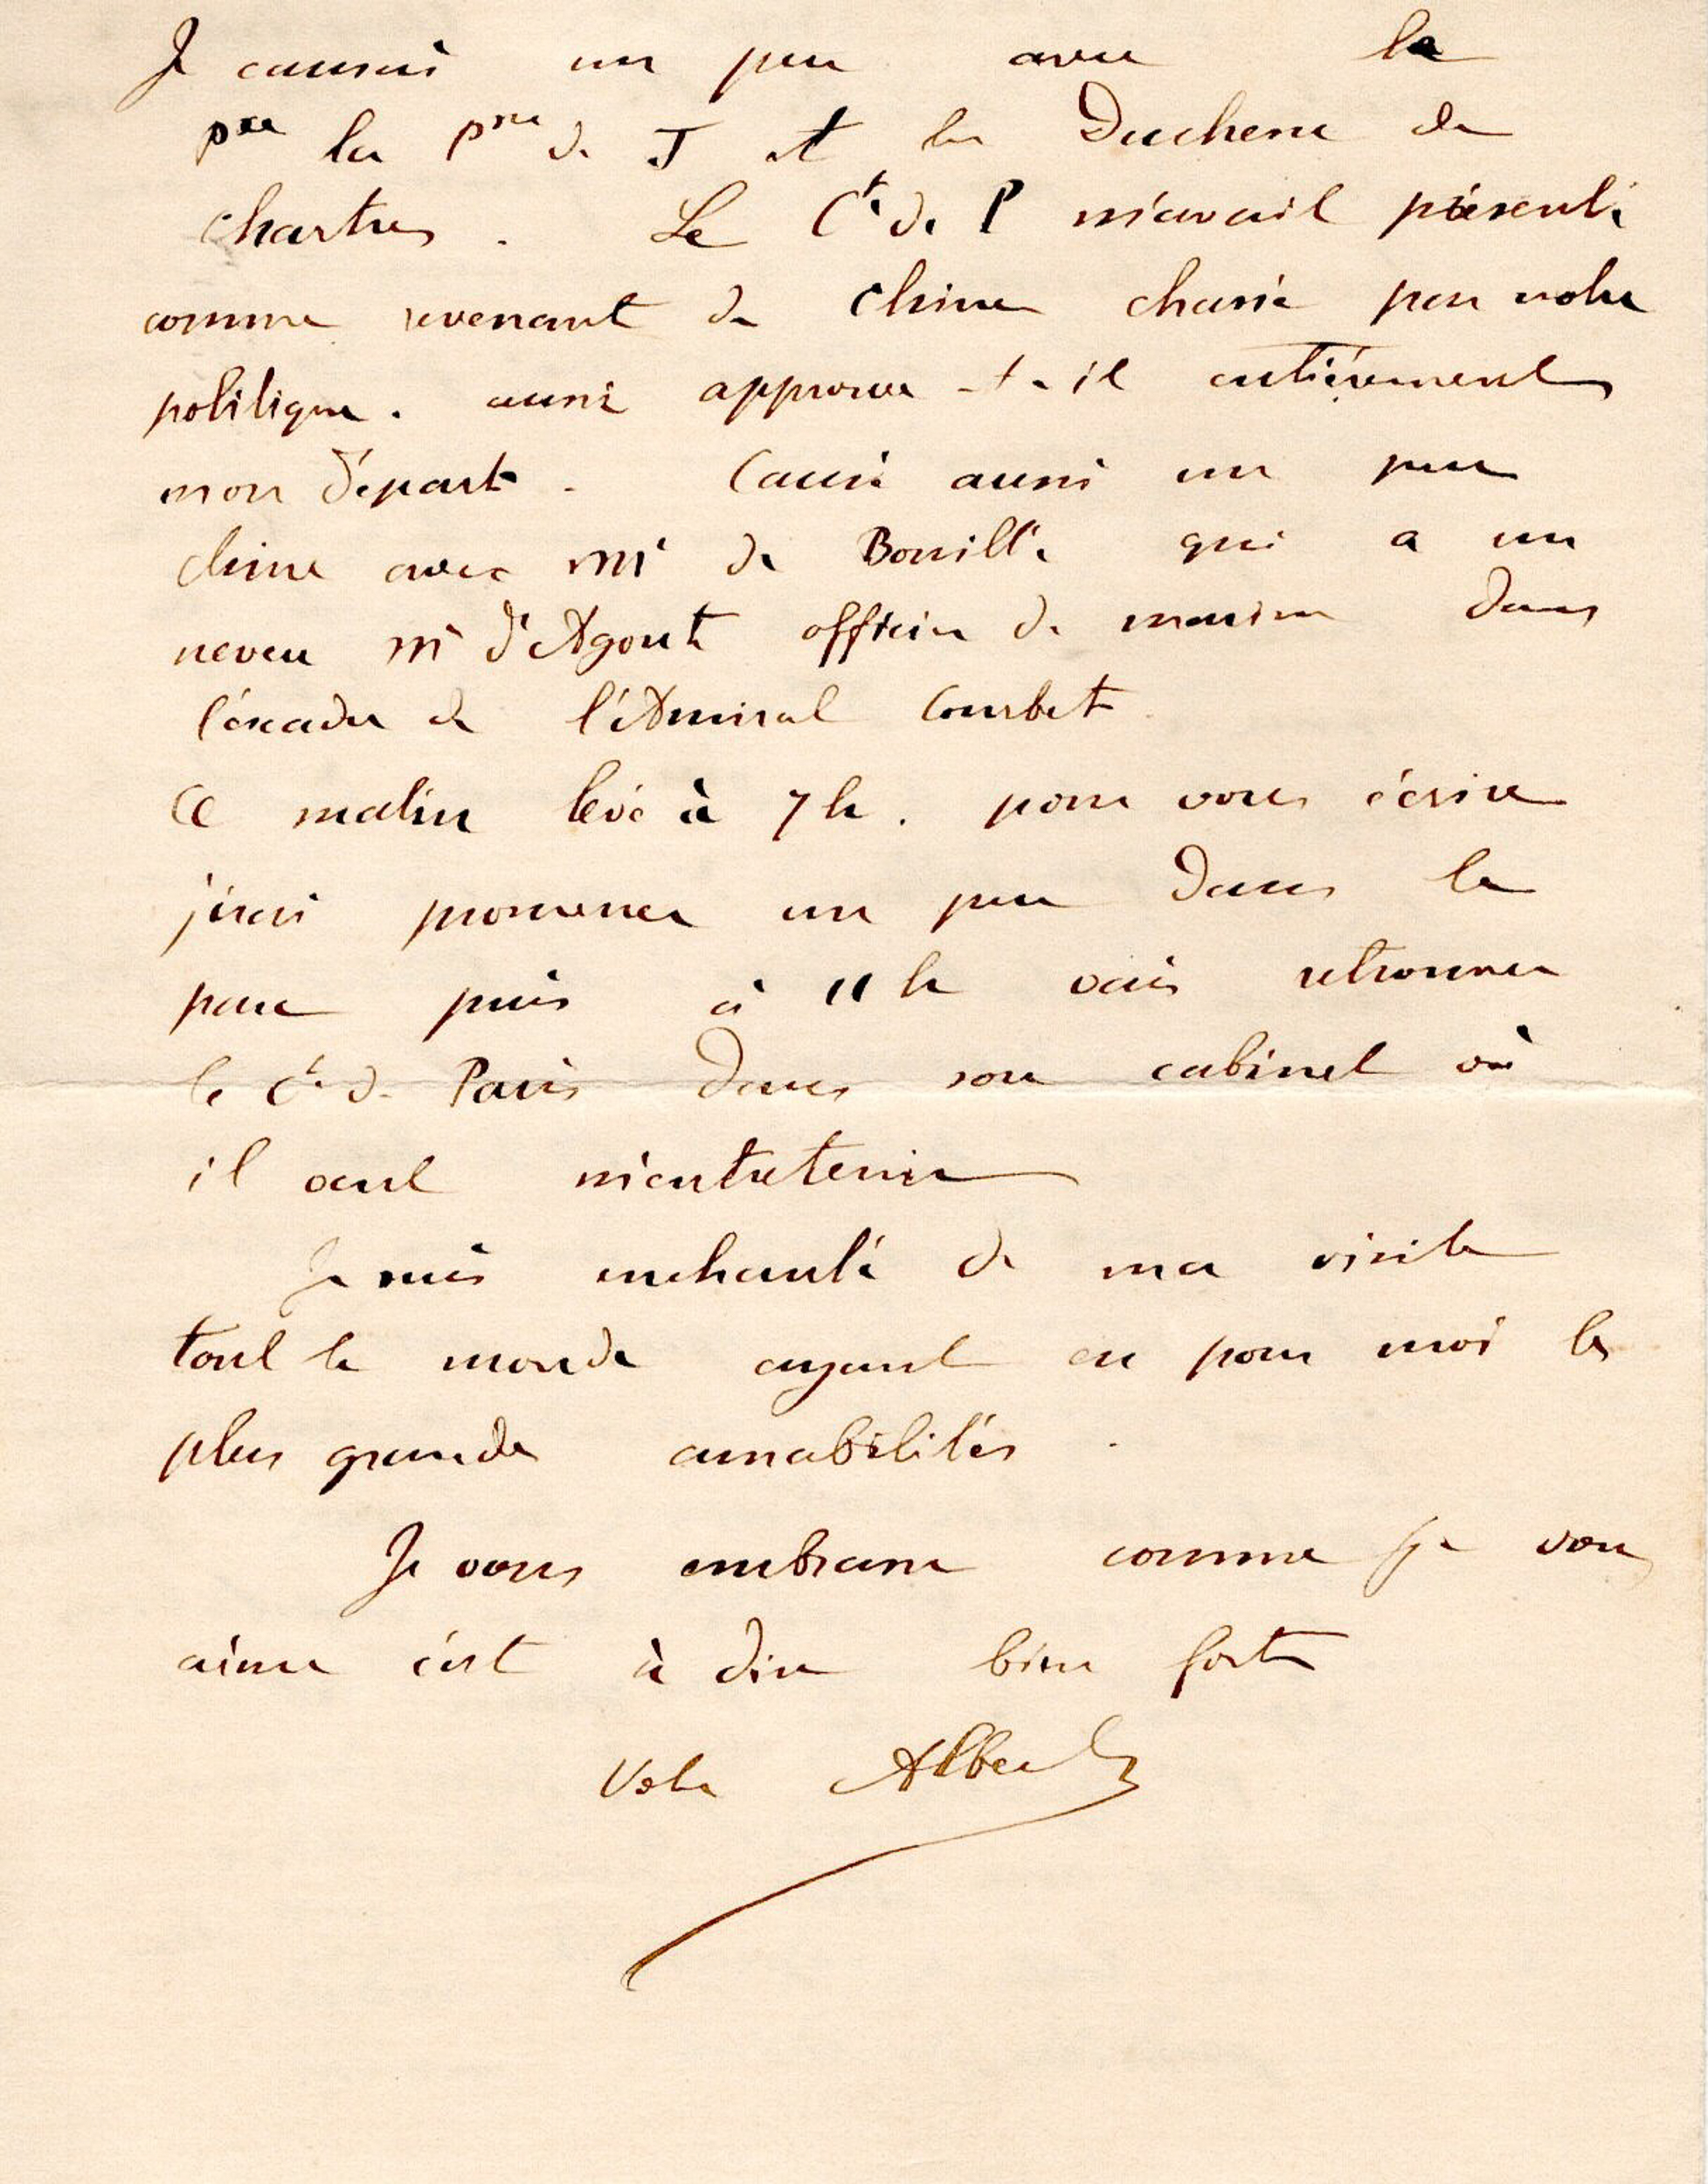 Je causais un peu avec le
pce la pcesse de J et la Duchesse de
Chartres. Le Cte de P m'avait présenté
comme revenant de Chine chassé par notre
politique. aussi approuve-t-il entièrement
mon départ. Causé aussi un peu
chine avec Mr de Bouillé qui a un
neveu Mr d'Agoult officier de marine dans
l'escadre de l'Amiral Courbet
Ce matin levé à 7h. pour vous écrire
j'irai promener un peu dans le
parc puis à 11h vais retrouver
le Cte de Paris dans son cabinet où
il veut m'entretenir
Je suis enchanté de ma visite
tout le monde ayant eu pour moi les
plus grandes amabilités.
Je vous embrasse comme je vous
aime c'est à dire bien fort
Votre Albert